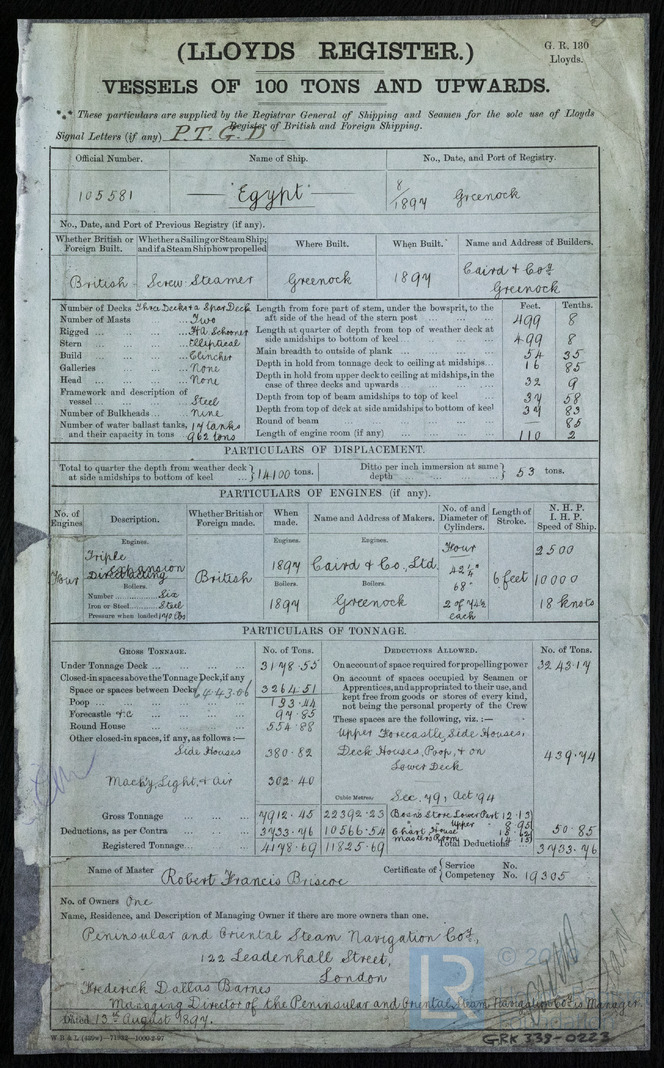 (LLOYDS REGISTER.)
G. R. 130
Lloyds.
VESSELS OF 100 TONS AND UPWARDS.
*** These particulars are supplied by the Registrar General of Shipping and Seamen for the sole use of Lloyds
Register of British and Foreign Shipping.
Signal Letters (if any) P.T.G.D
Official Number. Name of Ship. No., Date, and Port of Registry.
105581 "Egypt" 8/1897 Greenock
No., Date, and Port of Previous Registry (if any).
Whether British or Foreign Built. Whether a Sailing or Steam Ship; and if a Steam Ship how propelled Where Built. When Built. Name and Address of Builders.
British Screw Steamer Greenock 1897 Caird & Coy Greenock
Number of Decks Three Decks & a Spar Deck
Number of Masts ... Two
Rigged ... F&A Schooner
Stern ... Elliptical
Build ... Clincher
Galleries ... None
Head ... None
Framework and description of vessel ... Steel
Number of Bulkheads ... Nine
Number of water ballast tanks, and their capacity in tons 17 tanks 962 tons
Feet. Tenths.
Length from fore part of stem, under the bowsprit, to the aft side of the head of the stern post ... 499 8
Length at quarter of depth from top of weather deck at side amidships to bottom of keel ... 499 8
Main breadth to outside of plank ... 54 35
Depth in hold from tonnage deck to ceiling at midships ... 16 85
Depth in hold from upper deck to ceiling at midships, in the case of three decks and upwards ... 32 9
Depth from top of beam amidships to top of keel 37 58
Depth from top of deck at side amidships to bottom of keel 37 83
Round of beam ... — 85
Length of engine room (if any) ... 110 2
PARTICULARS OF DISPLACEMENT.
Total to quarter the depth from weather deck at side amidships to bottom of keel ... } 14100 tons.
Ditto per inch immersion at same depth ... } 53 tons.
PARTICULARS OF ENGINES (if any).
No. of Engines Description. Whether British or Foreign made. When made. Name and Address of Makers. No. of and Diameter of Cylinders. Length of Stroke. N. H. P. I. H. P. Speed of Ship.
Engines. Engines. Engines.
Four Triple Expansion Direct Acting British 1897 Caird & Co., Ltd. Four 42½" 68" 6 feet 2500 10000
Boilers. Boilers. Boilers.
Number ... Six
Iron or Steel ... Steel
Pressure when loaded 170 lbs
1897 Greenock 2 of 74½ each 18 knots
PARTICULARS OF TONNAGE.
GROSS TONNAGE. No. of Tons. DEDUCTIONS ALLOWED. No. of Tons.
Under Tonnage Deck ... 3178.55
Closed-in spaces above the Tonnage Deck, if any
Space or spaces between Decks 6443.06 3264.51
Poop ... 133.44
Forecastle &c ... 97.85
Round House ... 554.88
Other closed-in spaces, if any, as follows:—
Side Houses 380.82
Machy, Light, & Air 302.40
On account of space required for propelling power 3243.17
On account of spaces occupied by Seamen or Apprentices, and appropriated to their use, and kept free from goods or stores of every kind, not being the personal property of the Crew
These spaces are the following, viz.:—
Upper Forecastle, Side Houses,
Deck Houses, Poop, & on
Lower Deck 439.74
Cubic Metres.
Sec. 79, Act '94
Gross Tonnage 7912.45 22392.23
Deductions, as per Contra ... 3733.76 10566.54
Registered Tonnage 4178.69 11825.69
Boans Store Lower Part 12.13
" " Upper 8.95
Chart House
Masters Room
50.85
Total Deductions 3733.76
Name of Master Robert Francis Briscoe
Certificate of { Service No.
Competency No. 19305
No. of Owners One
Name, Residence, and Description of Managing Owner if there are more owners than one.
Peninsular and Oriental Steam Navigation Coy,
122 Leadenhall Street,
London
Frederick Dallas Barnes
Managing Director of the Peninsular and Oriental Steam Navigation Coy is Manager.
Dated 13th August 1897.
LR
GRK 339-0223